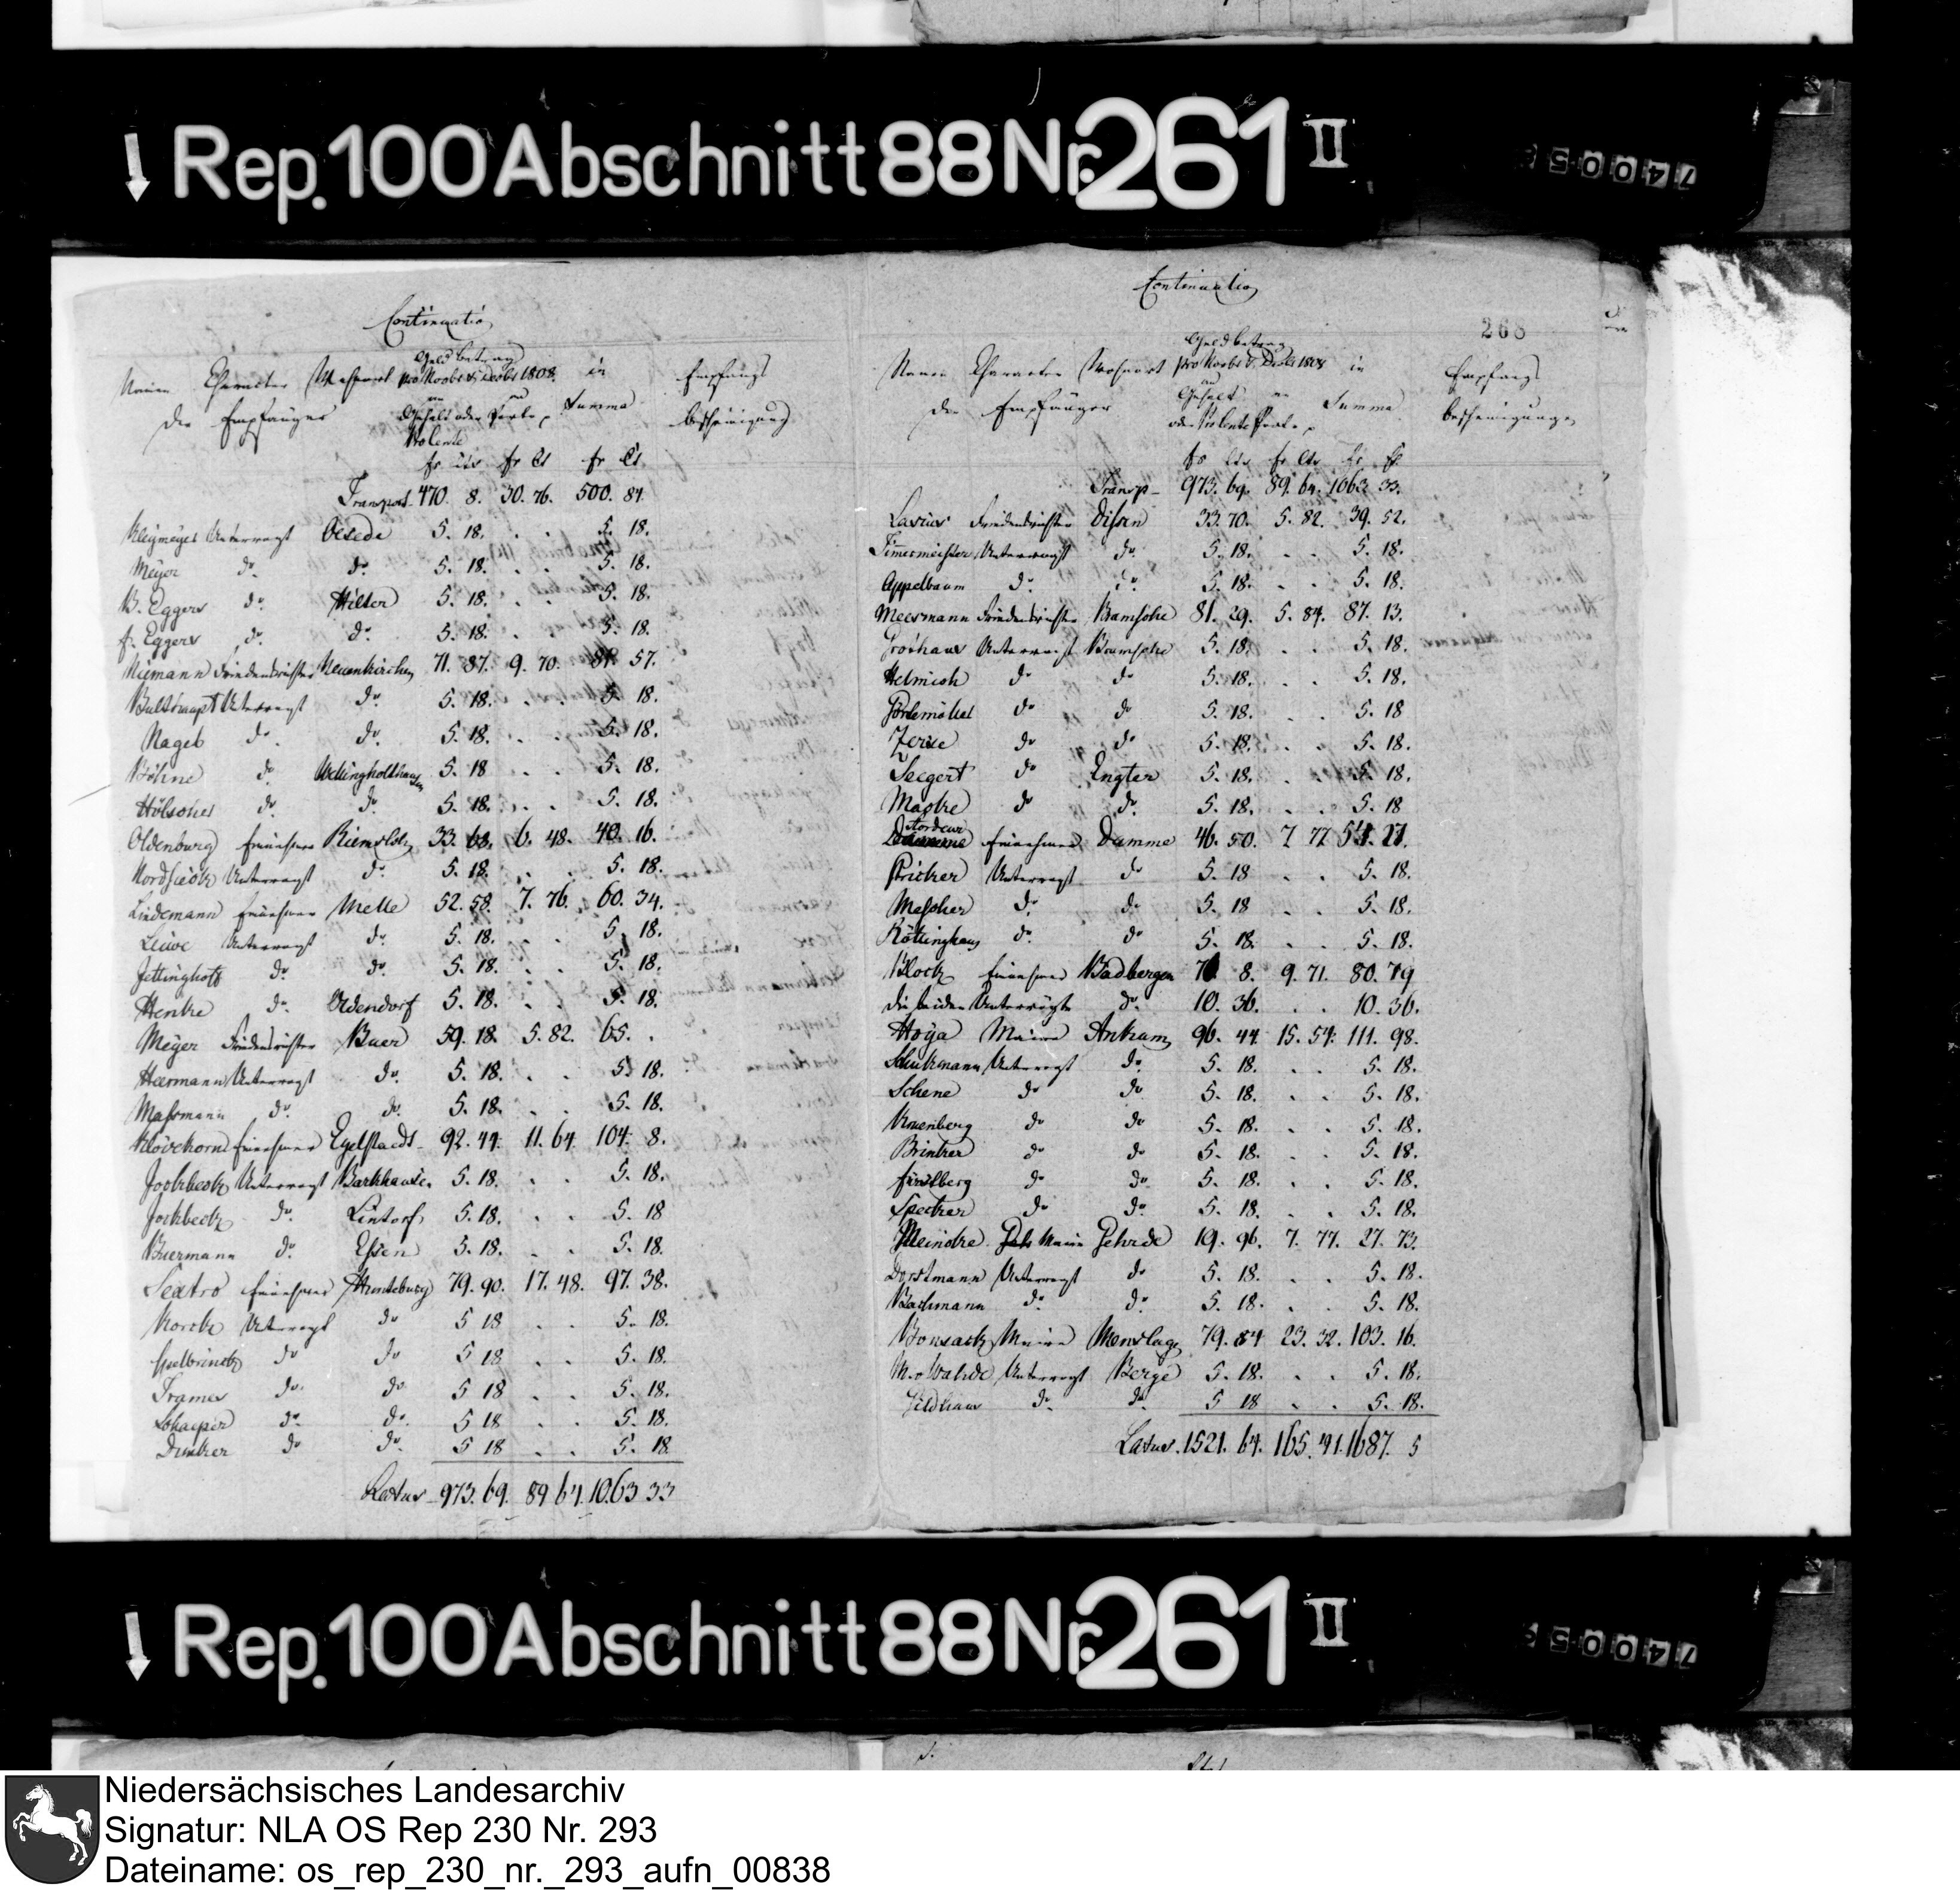 Rep. 100 Abschnitt 88 Nr. 261 II
740053
Continuatio
Namen Character Wohnort Geld betrag pro Novbr & Decbr 1808. in Empfangs
der Empfänger an Gehalt oder an Porto Summa bescheinigung
fr cts fr cts fr cts
Transport 470. 8. 30. 76. 500. 84.
Kleymeyer Untervogt Oesede 5. 18. . . 5. 18.
Meyer do. do. 5. 18. . . 5. 18.
B. Eggers do. Hilter 5. 18. . . 5. 18.
f. Eggers do. do. 5. 18. . . 5. 18.
Niemann Friedensrichter Neuenkirchen 71. 87. 9. 70. 81. 57.
Untervogt do. 5. 18. . . 5. 18.
Nagel do. do. 5. 18. . . 5. 18.
Böhne do. Wellingholthausen 5. 18 . . 5. 18.
Hölscher do. do. 5. 18. . . 5. 18.
Oldenburg Einnehmer Riemsloh 33. 68. 6. 48. 40. 16.
Nordsieck Untervogt do. 5. 18. . . 5. 18.
Lindemann Einnehmer Melle 52. 58. 7. 76. 60. 34.
Leüwe Untervogt do. 5. 18. . . 5. 18.
Jettinghoff do. do. 5. 18. . . 5. 18.
Henke do. Oldendorf 5. 18. . . 5. 18.
Meyer Friedensrichter Buer 59. 18. 5. 82. 65. .
Heermann Untervogt do. 5. 18. . . 5. 18.
Massmann do. do. 5. 18. . . 5. 18.
Klövekorn Einnehmer 92. 44. 11. 64. 104. 8.
Jockbeck Untervogt Barkhausen 5. 18. . . 5. 18.
Jockbeck do. Lintorf 5. 18. . . 5. 18
Buermann do. Essen 5. 18. . . 5. 18.
Sextro Einnehmer Hunteburg 79. 90. 17. 48. 97. 38.
Untervogt do 5 18 . . 5. 18.
do do 5 18 . . 5. 18.
Framer do. do. 5 18 . . 5. 18.
Schaeper do. do. 5 18 . . 5. 18.
Dunker do do. 5 18 . . 5. 18.
Latus 973. 69. 89 64. 1063 33
Continuatio
268
Namen Character Wohnort Geldbetrag pro Novbr & Decbr 1808 in Empfangs
der Empfänger an Gehalt an Porto Summa bescheinigungen
fr cts fr cts fr cts
Transp 973. 69. 89. 64. 1063. 33.
Lasius Friedensrichter Dissen 33. 70. 5. 82. 39. 52.
Timmermeister Untervogt do. 5. 18. . . 5. 18.
Appelbaum do. do. 5. 18. . . 5. 18.
Meesmann Friedensrichter Bramsche 81. 29. 5. 84. 87. 13.
Grothaus Untervogt Bramsche 5. 18. . . 5. 18.
Helmich do do 5. 18. . . 5. 18.
do do 5. 18. . . 5. 18
do do 5. 18. . . 5. 18.
Seegert do Engter 5. 18. . . 5. 18.
Magke do do. 5. 18. . . 5. 18
Einnehmer Damme 46. 50. 7 77 54. 27.
Pricker Untervogt do 5. 18 . . 5. 18.
Mescher do. do. 5. 18 . . 5. 18.
Röttinghaus do. do 5. 18. . . 5. 18.
Block Einnehmer Badbergen 71 8. 9. 71. 80. 79
die beiden Untervögte do. 10. 36. . . 10. 36.
Hoya Maire Ankum 96. 44. 15. 54. 111. 98.
Schuhmann Untervogt do. 5. 18. . . 5. 18.
Schene do do 5. 18. . . 5. 18.
Kruenberg do do 5. 18. . . 5. 18.
Brinker do do 5. 18. . . 5. 18.
do do. 5. 18. . . 5. 18.
Specker do do. 5. 18. . . 5. 18.
Meindre Maire Gehrde 19. 96. 7. 77. 27. 73.
Dorstmann Untervogt do 5. 18. . . 5. 18.
Bachmann do. do. 5. 18. . . 5. 18.
Bonsack Maire Menslage 79. 84 23. 32. 103. 16.
M. v Wahlde Untervogt Berge 5. 18. . . 5. 18.
Gildhaus do. do. 5 18 . . 5. 18.
Latus. 1521. 64. 165. 41. 1687. 5
Rep. 100 Abschnitt 88 Nr. 261 II
740053
Niedersächsisches Landesarchiv
Signatur: NLA OS Rep 230 Nr. 293
Dateiname: os_rep_230_nr._293_aufn_00838